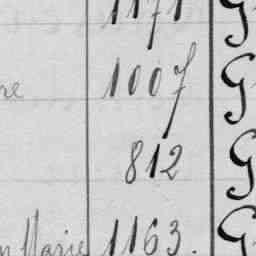 1171 G
re 1007 G
812 G
n Marie 1163. G